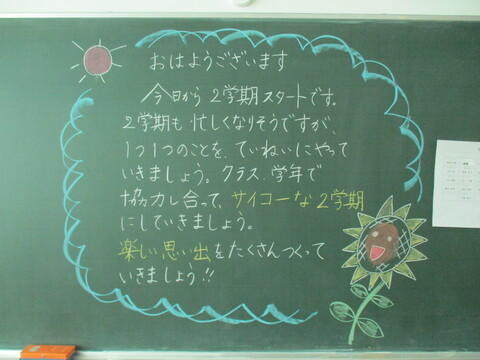 おはようございます
今日から2学期スタートです。
2学期も忙しくなりそうですが、
1つ1つのことを、ていねいにやって
いきましょう。クラス、学年で
協力し合って、サイコーな2学期
にしていきましょう。
楽しい思い出をたくさんつくって
いきましょう!!